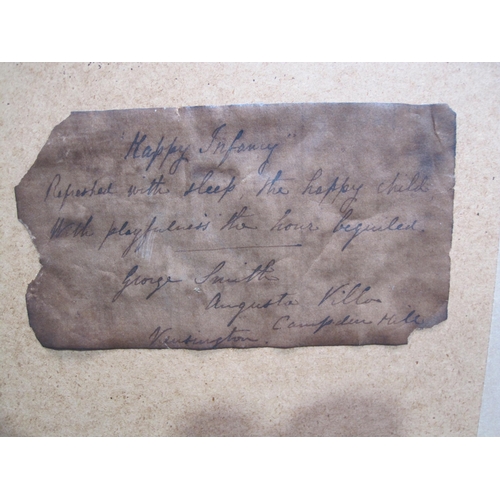 "Happy Infancy"
Refreshed with sleep the happy child
With playfulness the hour beguiled.
George Smith
Augusta Villa
Campden Hill
Kensington.